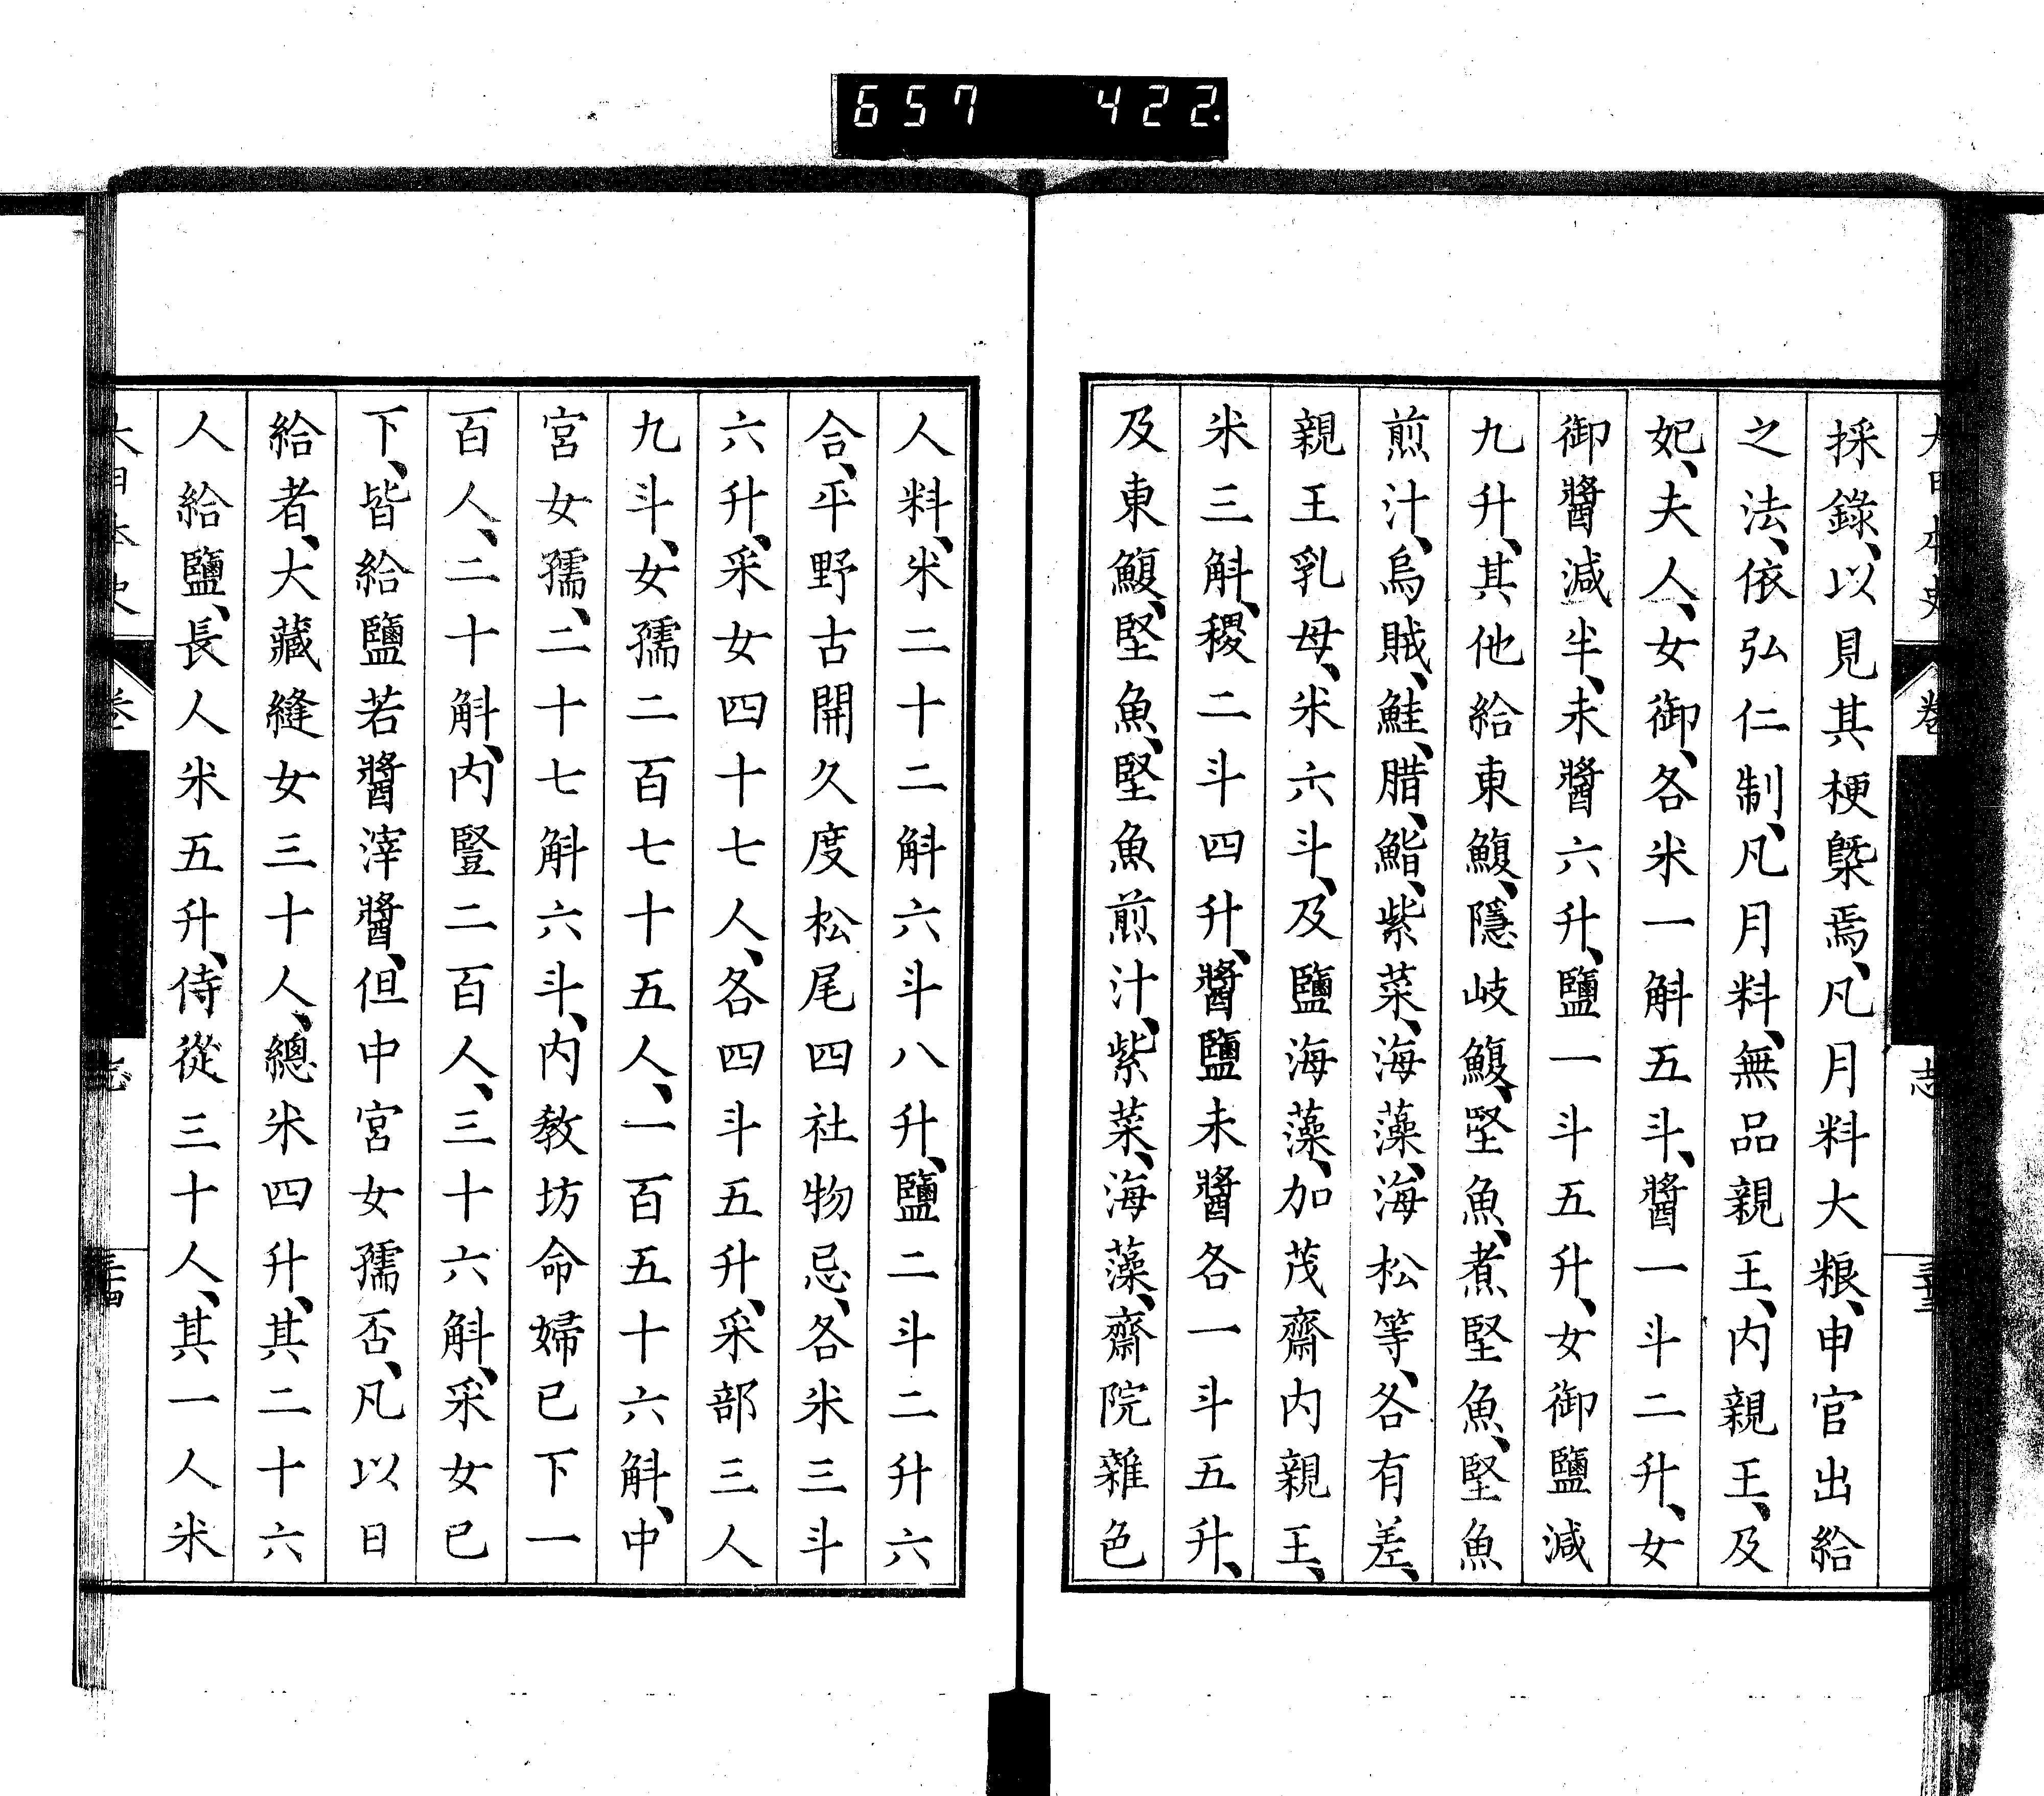 657 422
大日本史 卷 志 三十三
採錄、以見其梗槩焉、凡月料大粮、申官出給
之法、依弘仁制、凡月料、無品親王、内親王、及
妃、夫人、女御、各米一斛五斗、醬一斗二升、女
御醬減半、未醬六升、鹽一斗五升、女御鹽減
九升、其他給東鰒、隱岐鰒、堅魚、煮堅魚、堅魚
煎汁、烏賊、鮭、腊、鮨、紫菜、海藻、海松等、各有差、
親王乳母、米六斗、及鹽海藻、加茂齋内親王、
米三斛、稷二斗四升、醬鹽未醬各一斗五升、
及東鰒、堅魚、堅魚煎汁、紫菜、海藻、齋院雜色
人料、米二十二斛六斗八升、鹽二斗二升六
合、平野古開久度松尾四社物忌、各米三斗
六升、采女四十七人、各四斗五升、采部三人
九斗、女孺二百七十五人、一百五十六斛、中
宮女孺、二十七斛六斗、内教坊命婦已下一
百人、二十斛、内豎二百人、三十六斛、采女已
下、皆給鹽若醬滓醬、但中宮女孺否、凡以日
給者、大藏縫女三十人、總米四升、其二十六
人給鹽、長人米五升、侍從三十人、其一人米
大日本史 卷 志 三十四